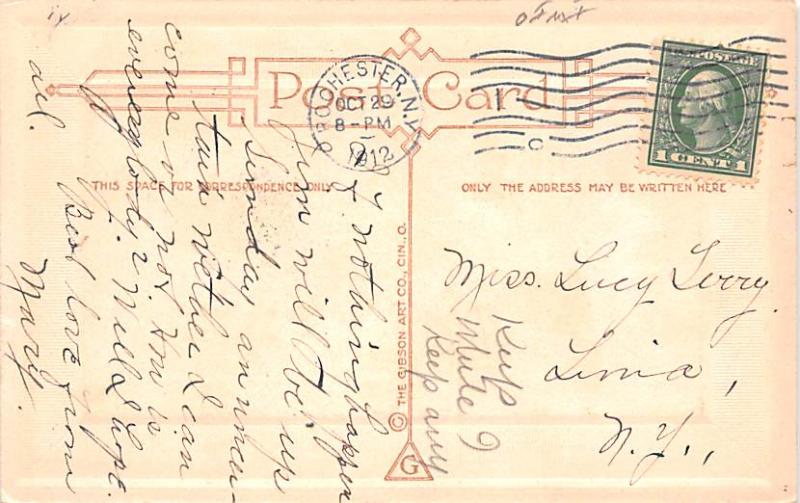 Post Card
ROCHESTER, N.Y.
OCT 29
8-PM
1912
U.S. POSTAGE
1 CENT 1
THIS SPACE FOR CORRESPONDENCE ONLY
ONLY THE ADDRESS MAY BE WRITTEN HERE
© THE GIBSON ART CO., CIN., O.
G
If nothing happen
Jim will be up
Sunday an uncer-
tain wether I can
come or not How is
everessbody? Well I hope
all. Best love from
Mary.
Miss. Lucy Terry
Lima,
N.Y.,
Keep
while I
Keep any